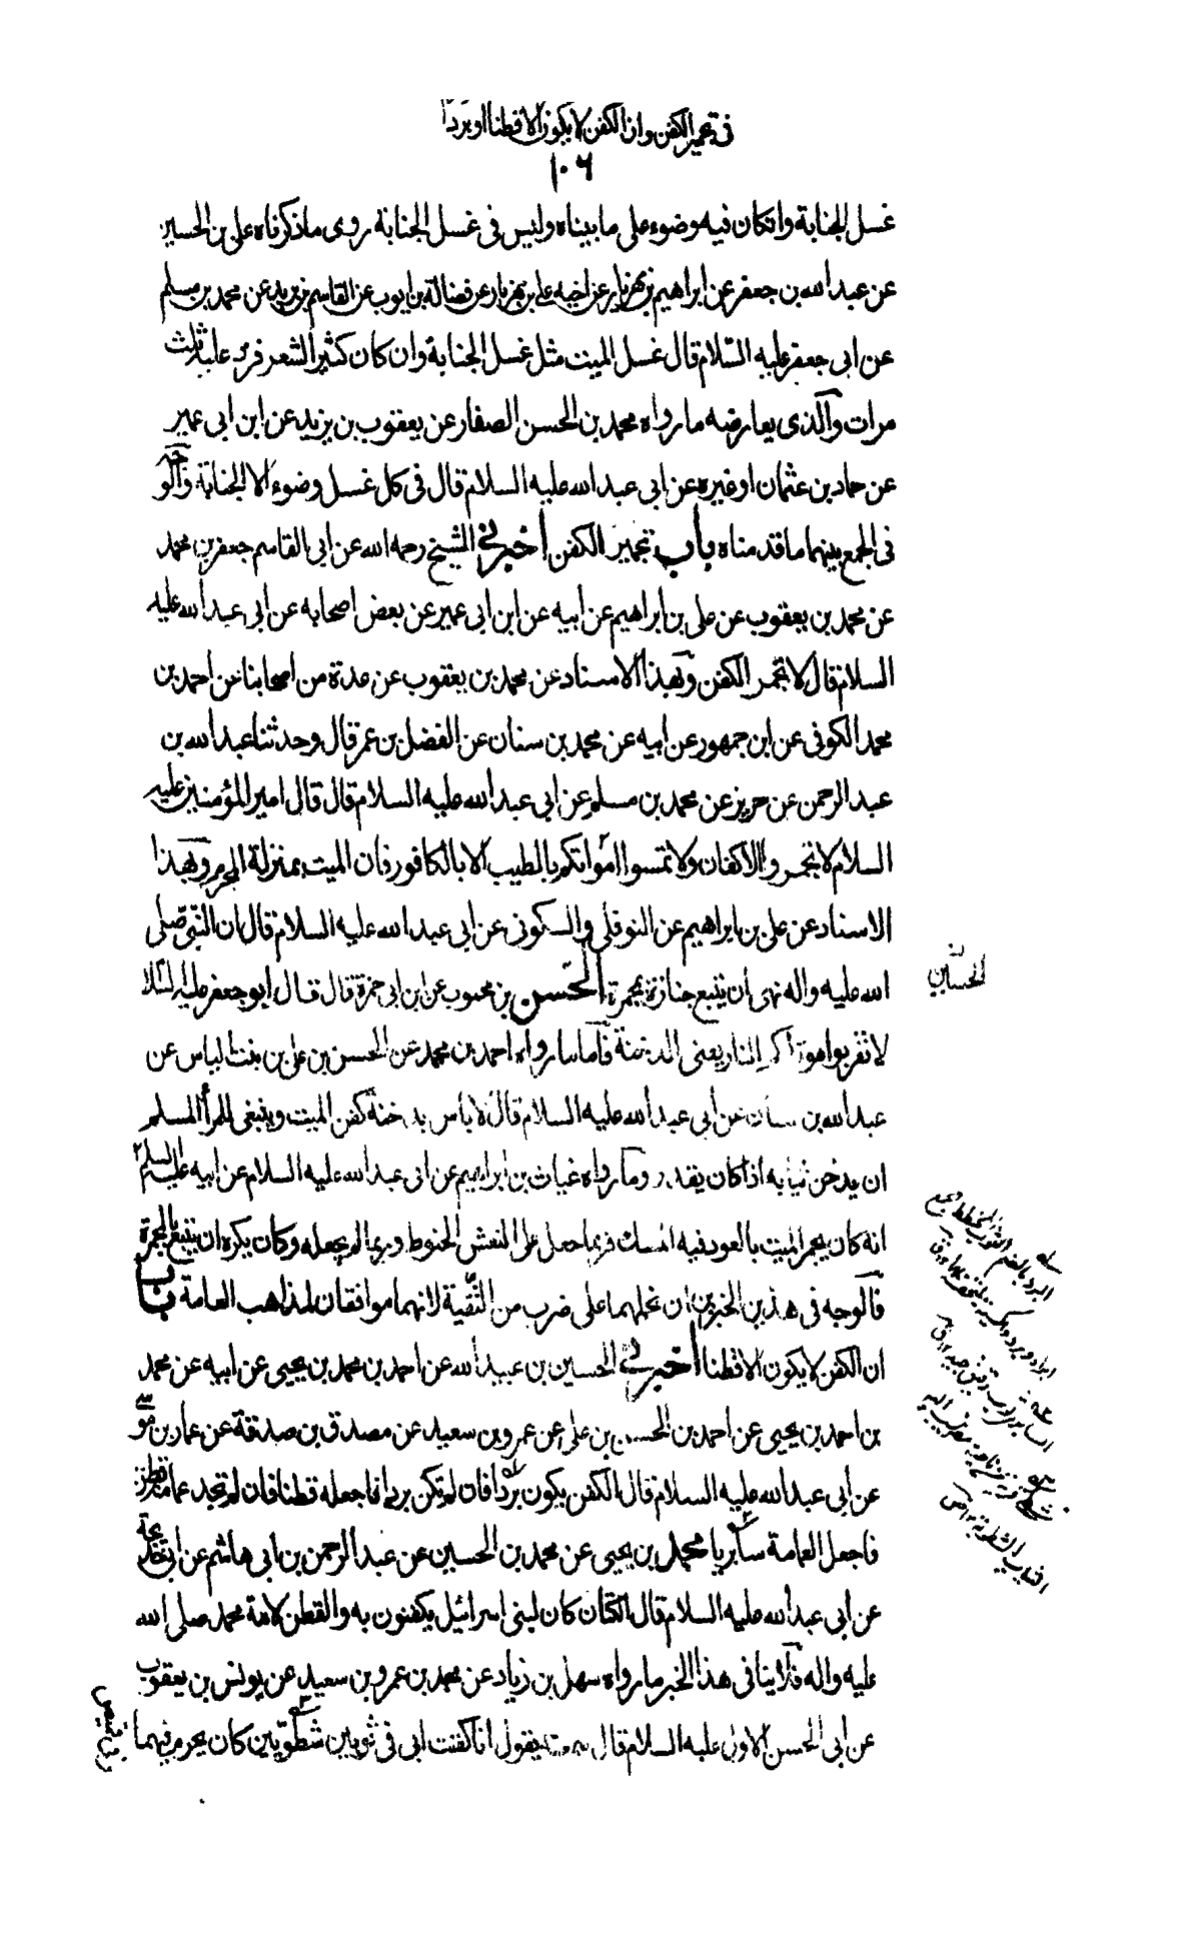 في تجمير الكفن وان الكفن لا يكون الا قطنا او بردا
١٠٦
غسل الجنابة وان كان فيه وضوء على ما بيناه وليس في غسل الجنابة روى ما ذكرناه علي بن الحسين
عن عبد الله بن جعفر عن ابراهيم بن مهزيار عن اخيه علي بن مهزيار عن فضالة بن ايوب عن القاسم بن بريد عن محمد بن مسلم
عن ابي جعفر عليه السلام قال غسل الميت مثل غسل الجنابة وان كان كثير الشعر فرد عليه ثلث
مرات والذي يعارضه ما رواه محمد بن الحسن الصفار عن يعقوب بن يزيد عن ابن ابي عمير
عن حماد بن عثمان او غيره عن ابي عبد الله عليه السلام قال في كل غسل وضوء الا الجنابة والوجه
في الجمع بينهما ما قدمناه باب تجمير الكفن اخبرني الشيخ رحمه الله عن ابي القاسم جعفر بن محمد
عن محمد بن يعقوب عن علي بن ابراهيم عن ابيه عن ابن ابي عمير عن بعض اصحابه عن ابي عبد الله عليه
السلام قال لا تجمر الكفن وبهذا الاسناد عن محمد بن يعقوب عن عدة من اصحابنا عن احمد بن
محمد الكوفي عن ابن جمهور عن ابيه عن محمد بن سنان عن الفضل بن عمر قال وحدثنا عبد الله بن
عبد الرحمن عن حريز عن محمد بن مسلم عن ابي عبد الله عليه السلام قال قال امير المؤمنين عليه
السلام لا تجمروا الاكفان ولا تمسوا امواتكم بالطيب الا بالكافور فان الميت بمنزلة المحرم وبهذا
الاسناد عن علي بن ابراهيم عن النوفلي والسكوني عن ابي عبد الله عليه السلام قال ان النبي صلى
الله عليه واله نهى ان يتبع جنازة بمجمرة الحسن بن محبوب عن ابن ابي حمزة قال قال ابو جعفر عليه السلا
الحسين
لا تقربوا موتاكم النار يعني الدخنة فاما ما رواه احمد بن محمد عن الحسن بن علي بن بنت الياس عن
عبد الله بن سنان عن ابي عبد الله عليه السلام قال لا باس بدخنة كفن الميت وينبغي للمرأ المسلم
ان يدخن ثيابه اذا كان يقدر وما رواه غياث بن ابراهيم عن ابي عبد الله عليه السلام عن ابيه عليه السلم
انه كان يجمر الميت بالعود فيه المسك فربما جعل على النعش الحنوط وربما لم يجعله وكان يكره ان يتبع بالمجمرة
فالوجه في هذين الخبرين ان نحملهما على ضرب من التقية لانهما موافقان لمذاهب العامة باب
ان الكفن لا يكون الا قطنا اخبرني الحسين بن عبيد الله عن احمد بن محمد بن يحيى عن ابيه عن محمد
بن احمد بن يحيى عن احمد بن الحسن بن علي عن عمرو بن سعيد عن مصدق بن صدقة عن عمار بن موسى
عن ابي عبد الله عليه السلام قال الكفن يكون بردا فان لم يكن بردا فاجعله قطنا فان لم تجد عمامة قطن
فاجعل العمامة سابريا محمد بن يحيى عن محمد بن الحسين عن عبد الرحمن بن ابي هاشم عن ابي خديجة
عن ابي عبد الله عليه السلام قال الكتان كان لبني اسرائيل يكفنون به والقطن لامة محمد صلى الله
عليه واله فلا ينافي هذا الخبر ما رواه سهل بن زياد عن محمد بن عمرو بن سعيد عن يونس بن يعقوب
عن ابي الحسن الاول عليه السلام قال سمعته يقول انا كفنت ابي في ثوبين شطويين كان يحرم فيهما